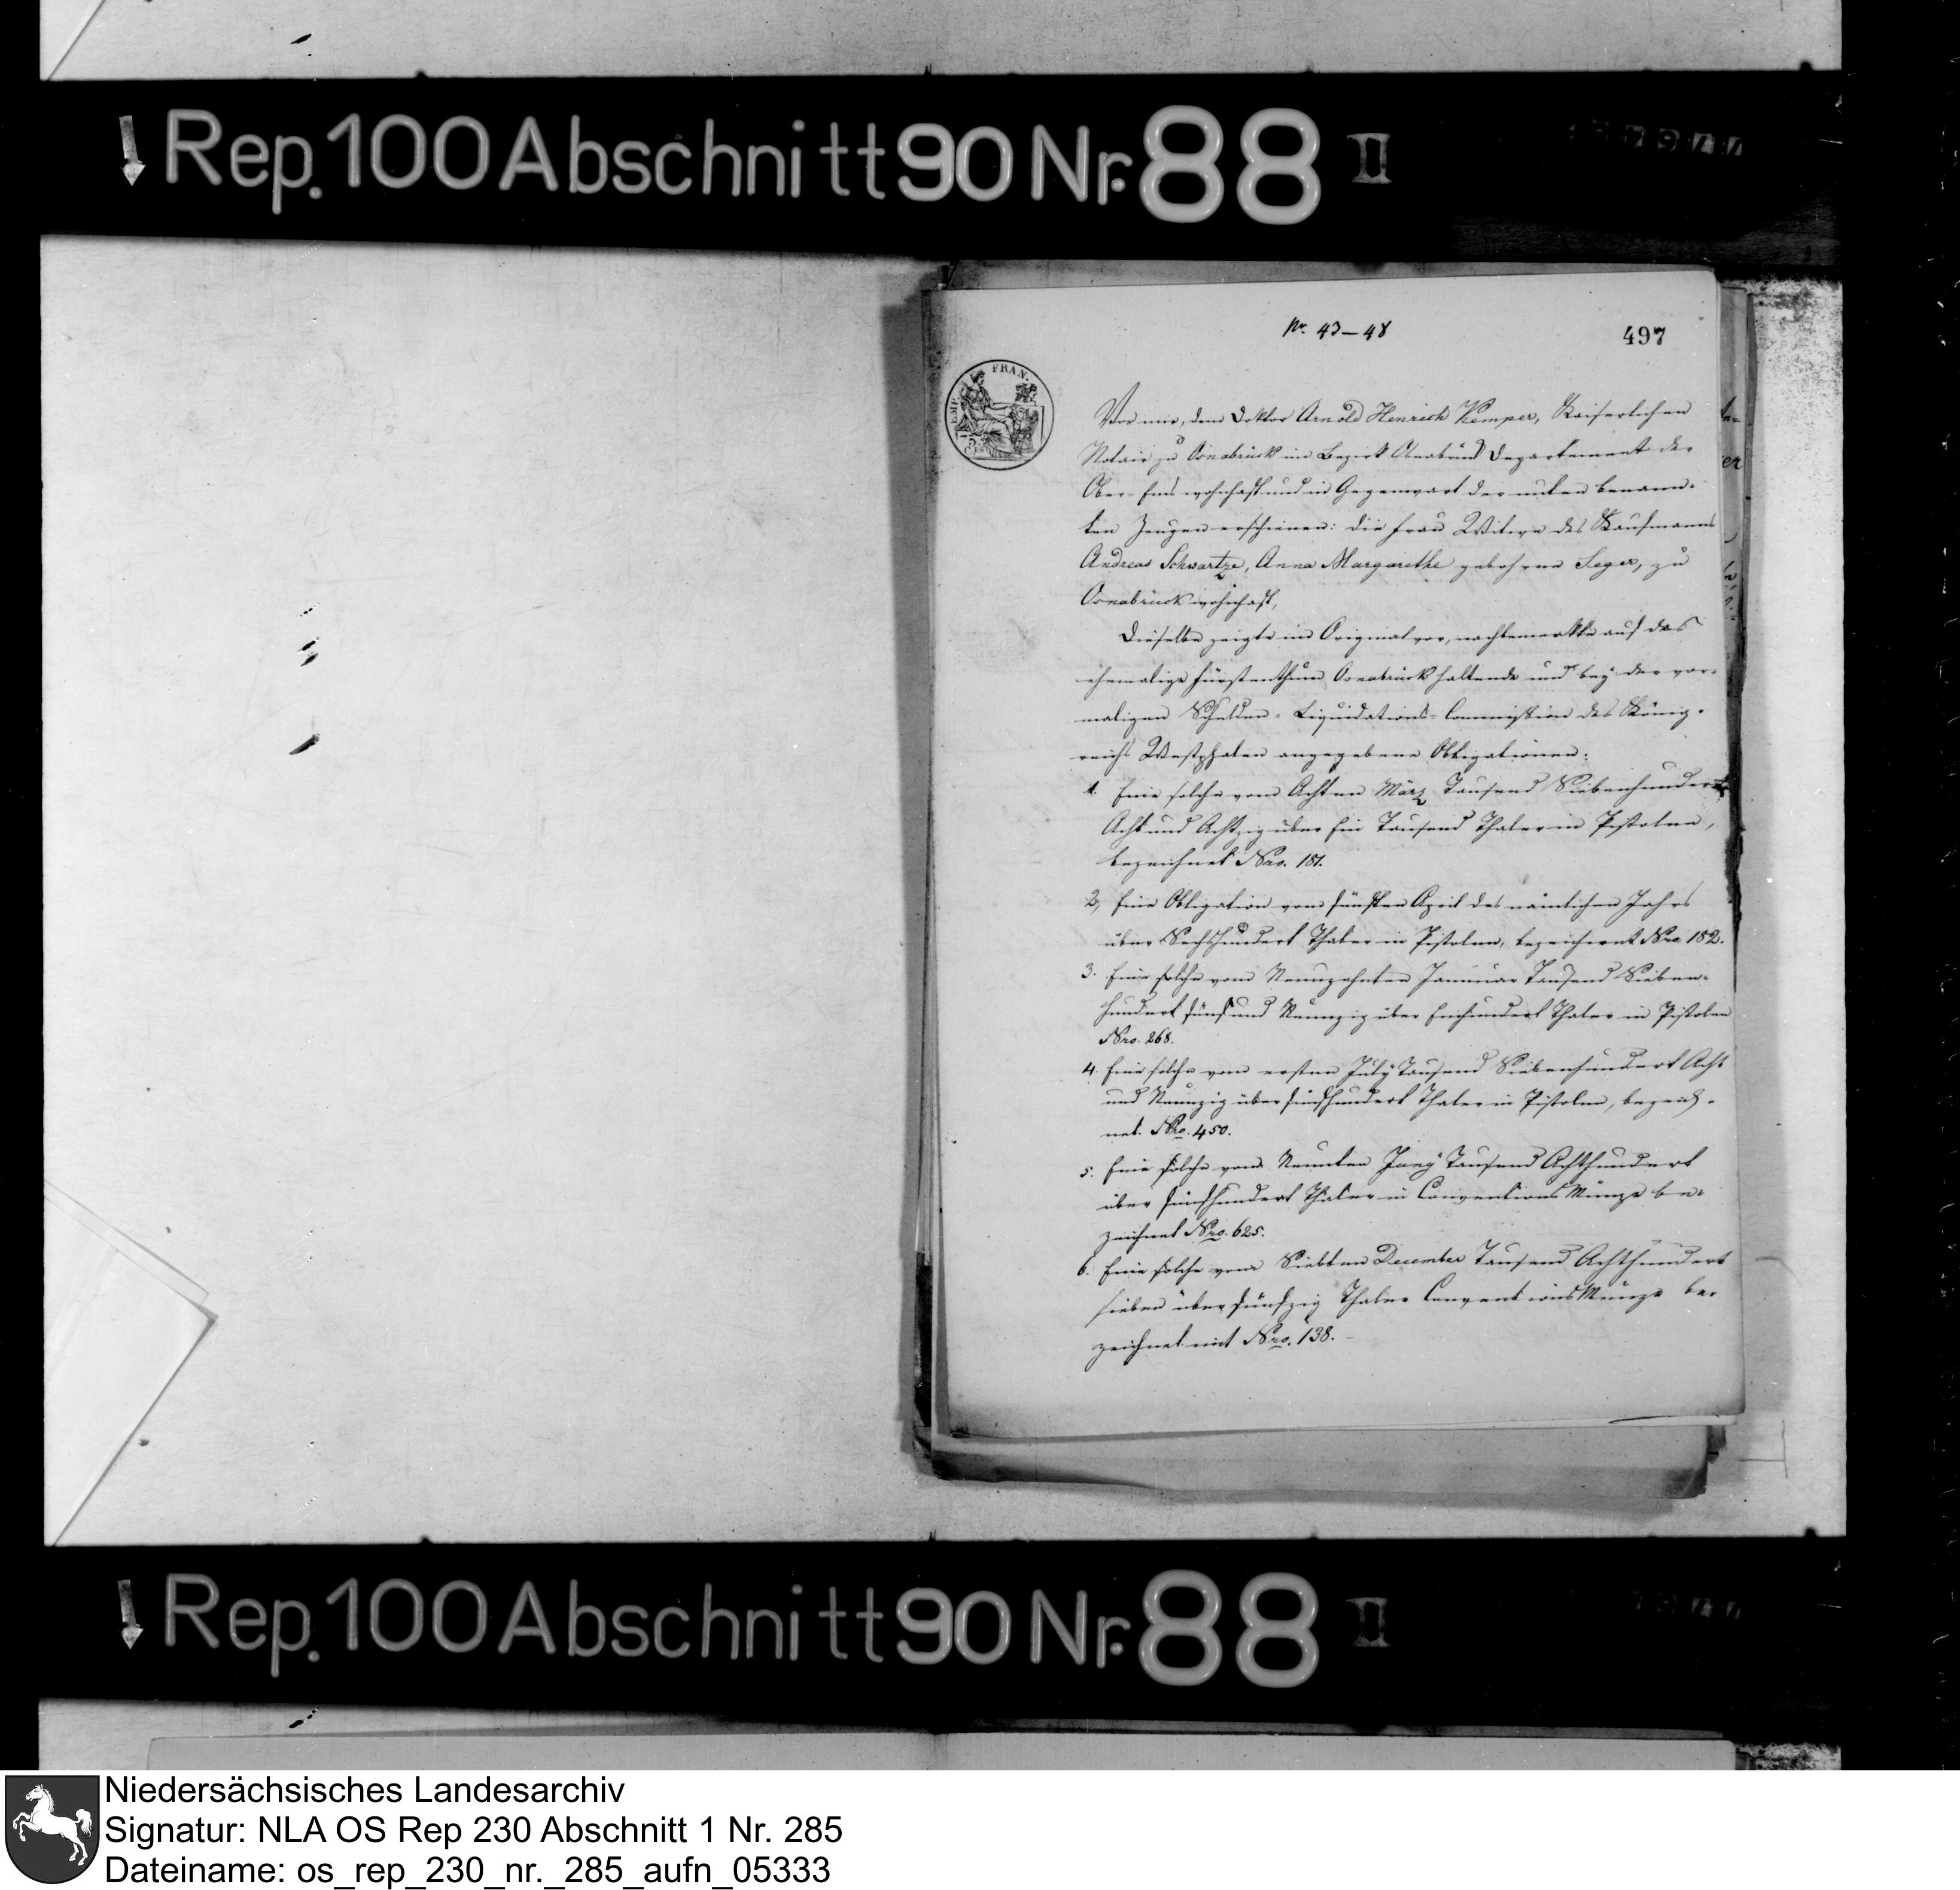 Rep. 100 Abschnitt 90 Nr. 88 II
Nr. 43–48
497
EMP. FRAN.
75
CES
Vor mir, dem Doktor Arnold Henrich Kemper, Kaiserlichen
Notair zu Osnabrück im Bezirk Osnabrück Departement der
Ober-Ems wohnhaft und in Gegenwart der unten benann-
ten Zeugen erschienen: die Frau Witwe des Kaufmanns
Andreas Schwartze, Anna Margarethe gebohrne Seger, zu
Osnabrück wohnhaft,
Dieselbe zeigte im Original vor, nachbemerkte auf das
ehemalige Fürstenthum Osnabrück haltende und bey der vor-
maligen Schulden-Liquidations-Commission des König-
reichs Westphalen angegebene Obligationen:
1. Eine solche vom Achten März Tausend Siebenhundert
Acht und Achtzig über Ein Tausend Thaler in Pistolen,
bezeichnet Nro. 181.
2, Eine Obligation vom fünften April des nämlichen Jahrs
über Sechshundert Thaler in Pistolen, bezeichnet Nro. 182.
3. Eine solche vom Neunzehnten Januar Tausend Sieben-
hundert fünf und Neunzig über Einhundert Thaler in Pistolen
Nro. 268.
4. Eine solche vom ersten July Tausend Siebenhundert Acht
und Neunzig über fünfhundert Thaler in Pistolen, bezeich-
net. Nro. 450.
5. Eine solche vom Neunten Juny Tausend Achthundert
über fünfhundert Thaler in Conventions Münze be-
zeichnet Nro. 625.
6. Eine solche vom Siebten December Tausend Achthundert
sieben über fünfzig Thaler Conventions Münze be-
zeichnet mit Nro. 138.
Rep. 100 Abschnitt 90 Nr. 88 II
Niedersächsisches Landesarchiv
Signatur: NLA OS Rep 230 Abschnitt 1 Nr. 285
Dateiname: os_rep_230_nr._285_aufn_05333